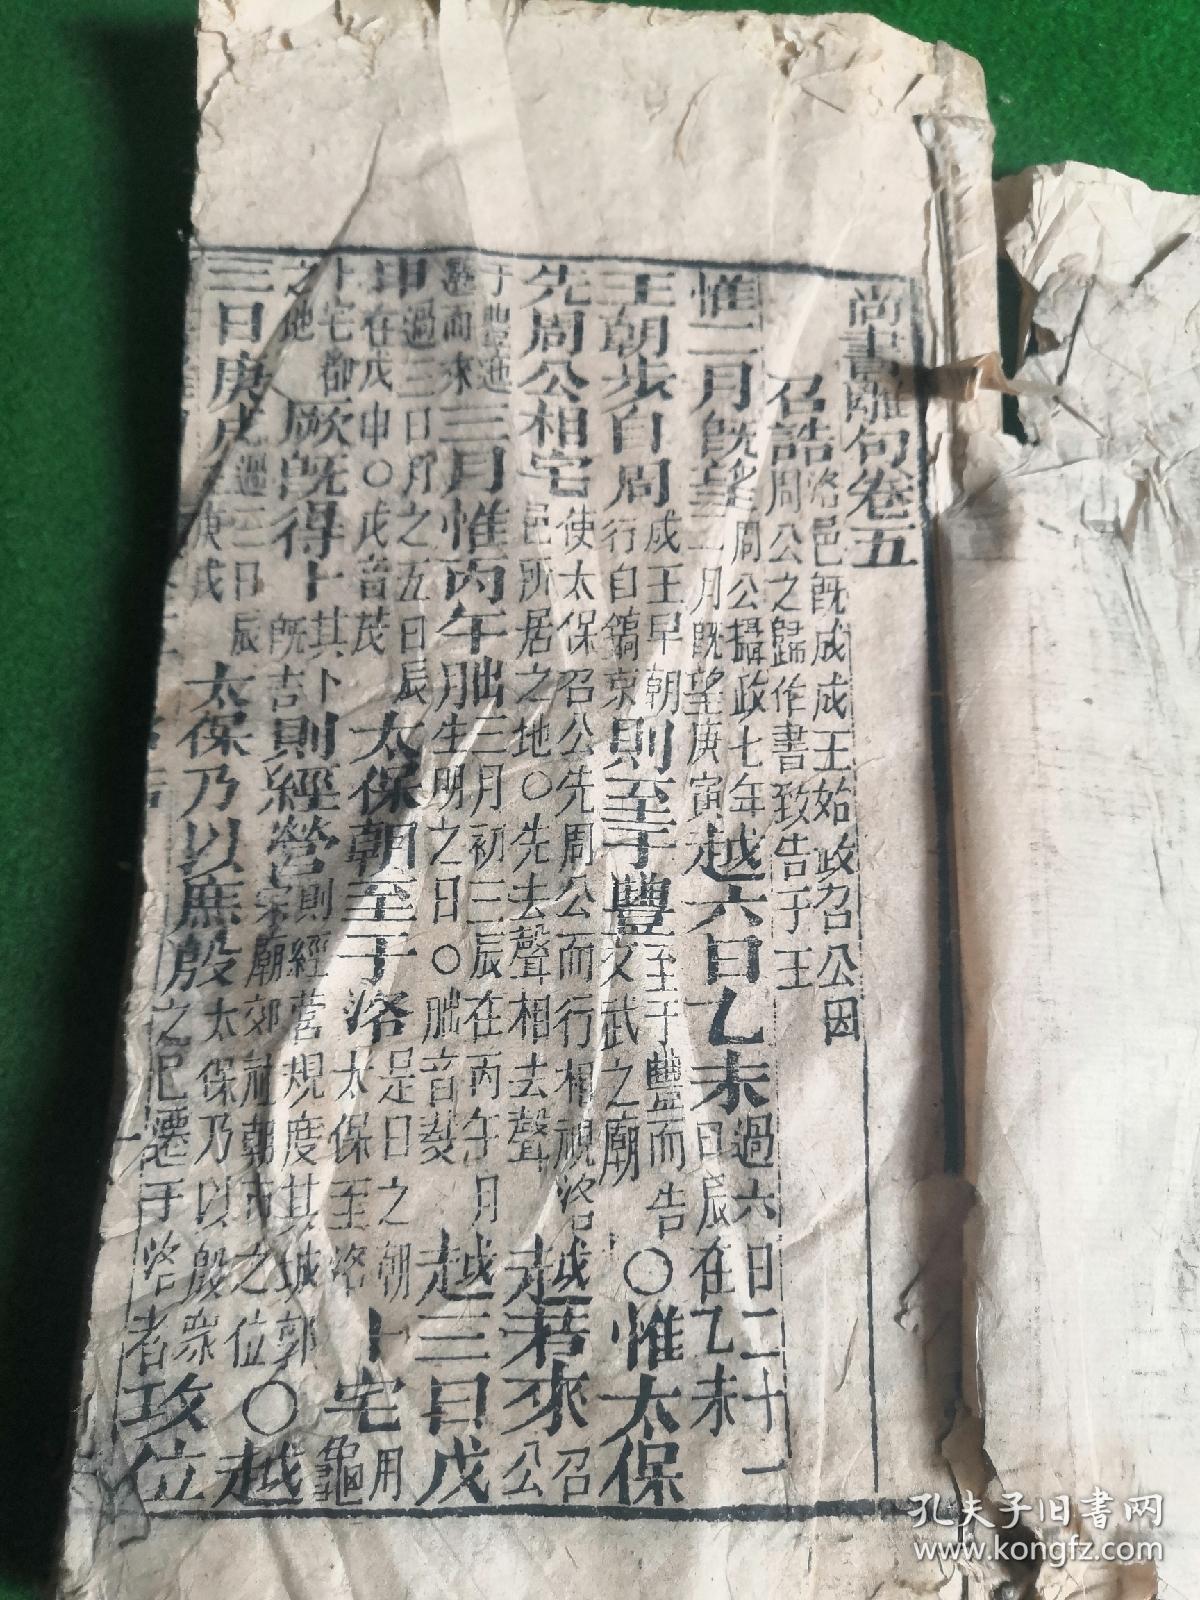 尚書離句卷五
召誥洛邑既成成王始政召公因周公之歸作書致告于王
惟二月既望周公攝政七年二月既望庚寅越六日乙未過六日二十一日辰在乙未
王朝步自周成王早朝行自鎬京則至于豐至于豐而告文武之廟○惟太保
先周公相宅使太保召公先周公而行相視洛邑所居之地○先去聲相去聲越若來召公
于豐迤邐而來三月惟丙午朏三月初三辰在丙午月月生明之日○朏音斐越三日戊
申過三日月之五日辰在戊申○戊音茂太保朝至于洛是日之朝太保至洛卜宅用龜
卜宅都之地厥既得卜其卜既吉則經營則經營規度其城郭宗廟郊社朝市之位○越
三日庚戌過三日辰庚戌太保乃以庶殷太保乃以殷眾之已遷于洛者攻位
孔夫子旧書网
www.kongfz.com